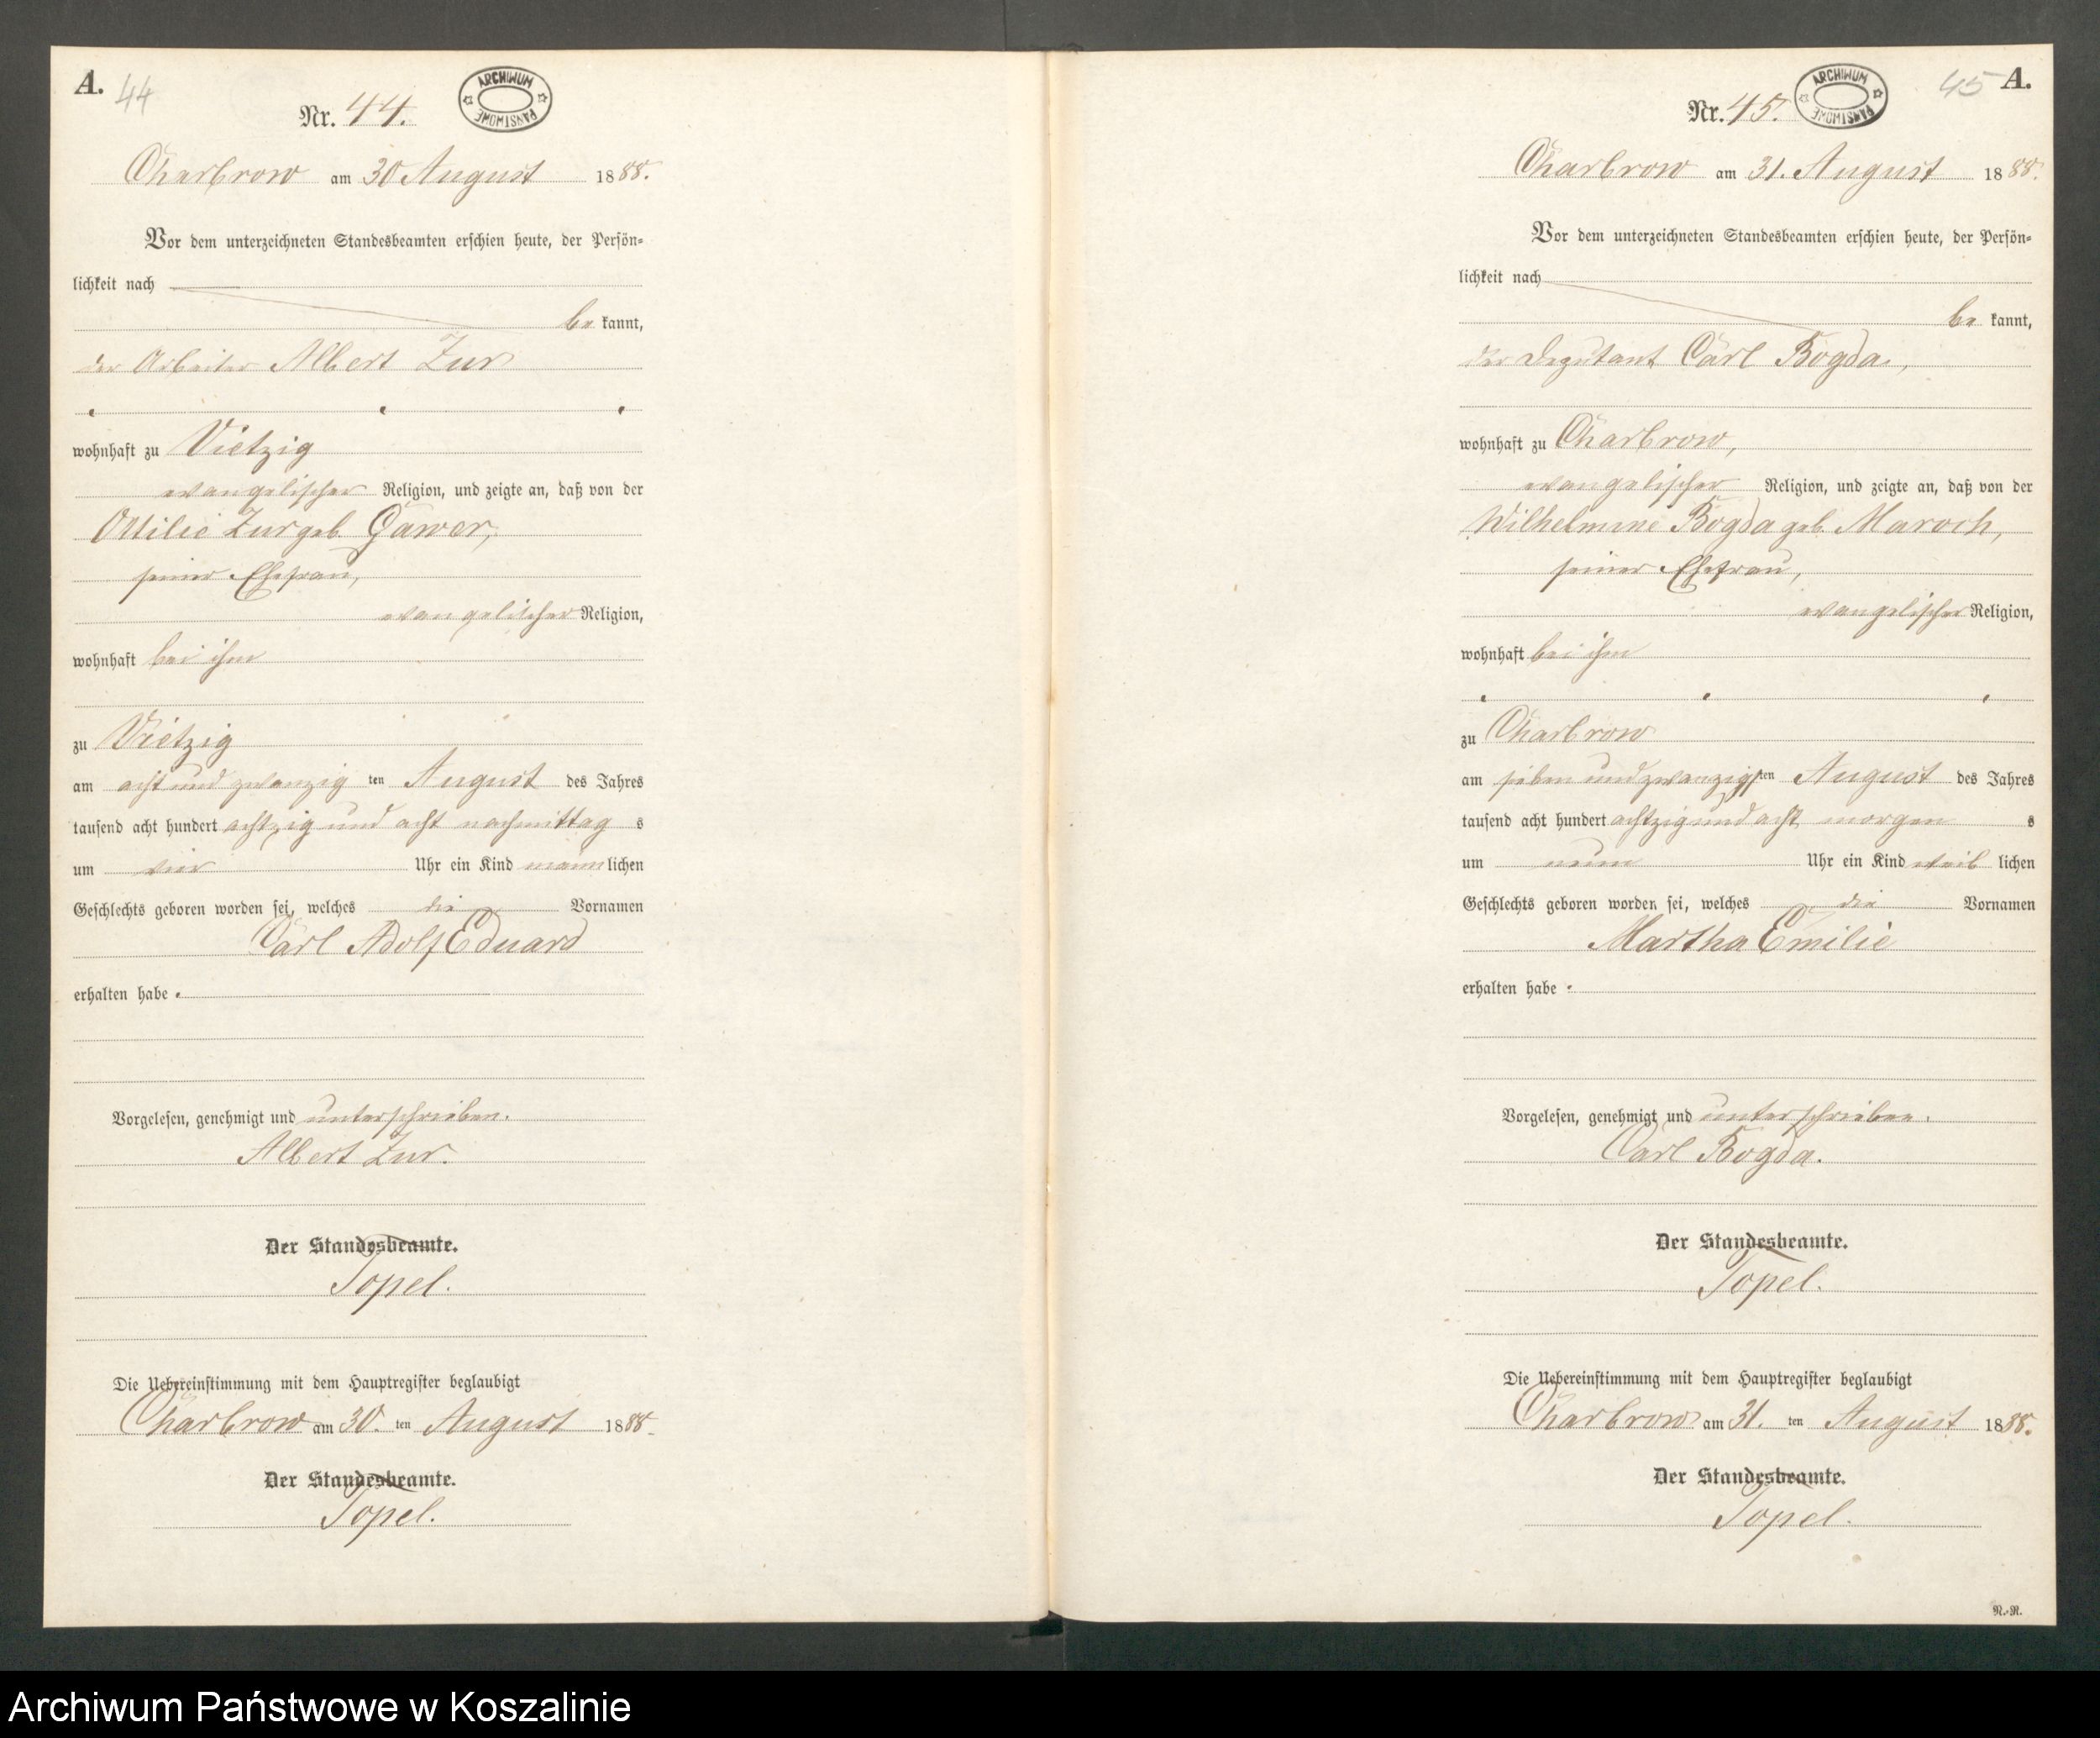 A. 44
ARCHIWUM PAŃSTWOWE
Nr. 44.
Charbrow am 30 August 1888.
Vor dem unterzeichneten Standesbeamten erschien heute, der Persön-
lichkeit nach
be kannt,
der Arbeiter Albert Zur
wohnhaft zu Vietzig
evangelischer Religion, und zeigte an, daß von der
Ottilie Zur geb. Gawer,
seiner Ehefrau,
evangelischer Religion,
wohnhaft bei ihm
zu Vietzig
am acht und zwanzig ten August des Jahres
tausend acht hundert achtzig und acht nachmittag s
um vier Uhr ein Kind männ lichen
Geschlechts geboren worden sei, welches die Vornamen
Carl Adolf Eduard
erhalten habe.
Vorgelesen, genehmigt und unterschrieben.
Albert Zur.
Der Standesbeamte.
Topel.
Die Uebereinstimmung mit dem Hauptregister beglaubigt
Charbrow am 30. ten August 1888.
Der Standesbeamte.
Topel.
45 A.
ARCHIWUM PAŃSTWOWE
Nr. 45.
Charbrow am 31. August 1888.
Vor dem unterzeichneten Standesbeamten erschien heute, der Persön-
lichkeit nach
be kannt,
der Deputant Carl Bogda,
wohnhaft zu Charbrow,
evangelischer Religion, und zeigte an, daß von der
Wilhelmine Bogda geb. Maroch,
seiner Ehefrau,
evangelischer Religion,
wohnhaft bei ihm
zu Charbrow
am sieben und zwanzigsten August des Jahres
tausend acht hundert achtzig und acht morgen s
um neun Uhr ein Kind weib lichen
Geschlechts geboren worden sei, welches die Vornamen
Martha Emilie
erhalten habe.
Vorgelesen, genehmigt und unterschrieben.
Carl Bogda.
Der Standesbeamte.
Topel.
Die Uebereinstimmung mit dem Hauptregister beglaubigt
Charbrow am 31. ten August 1888.
Der Standesbeamte.
Topel.
R.-R.
Archiwum Państwowe w Koszalinie